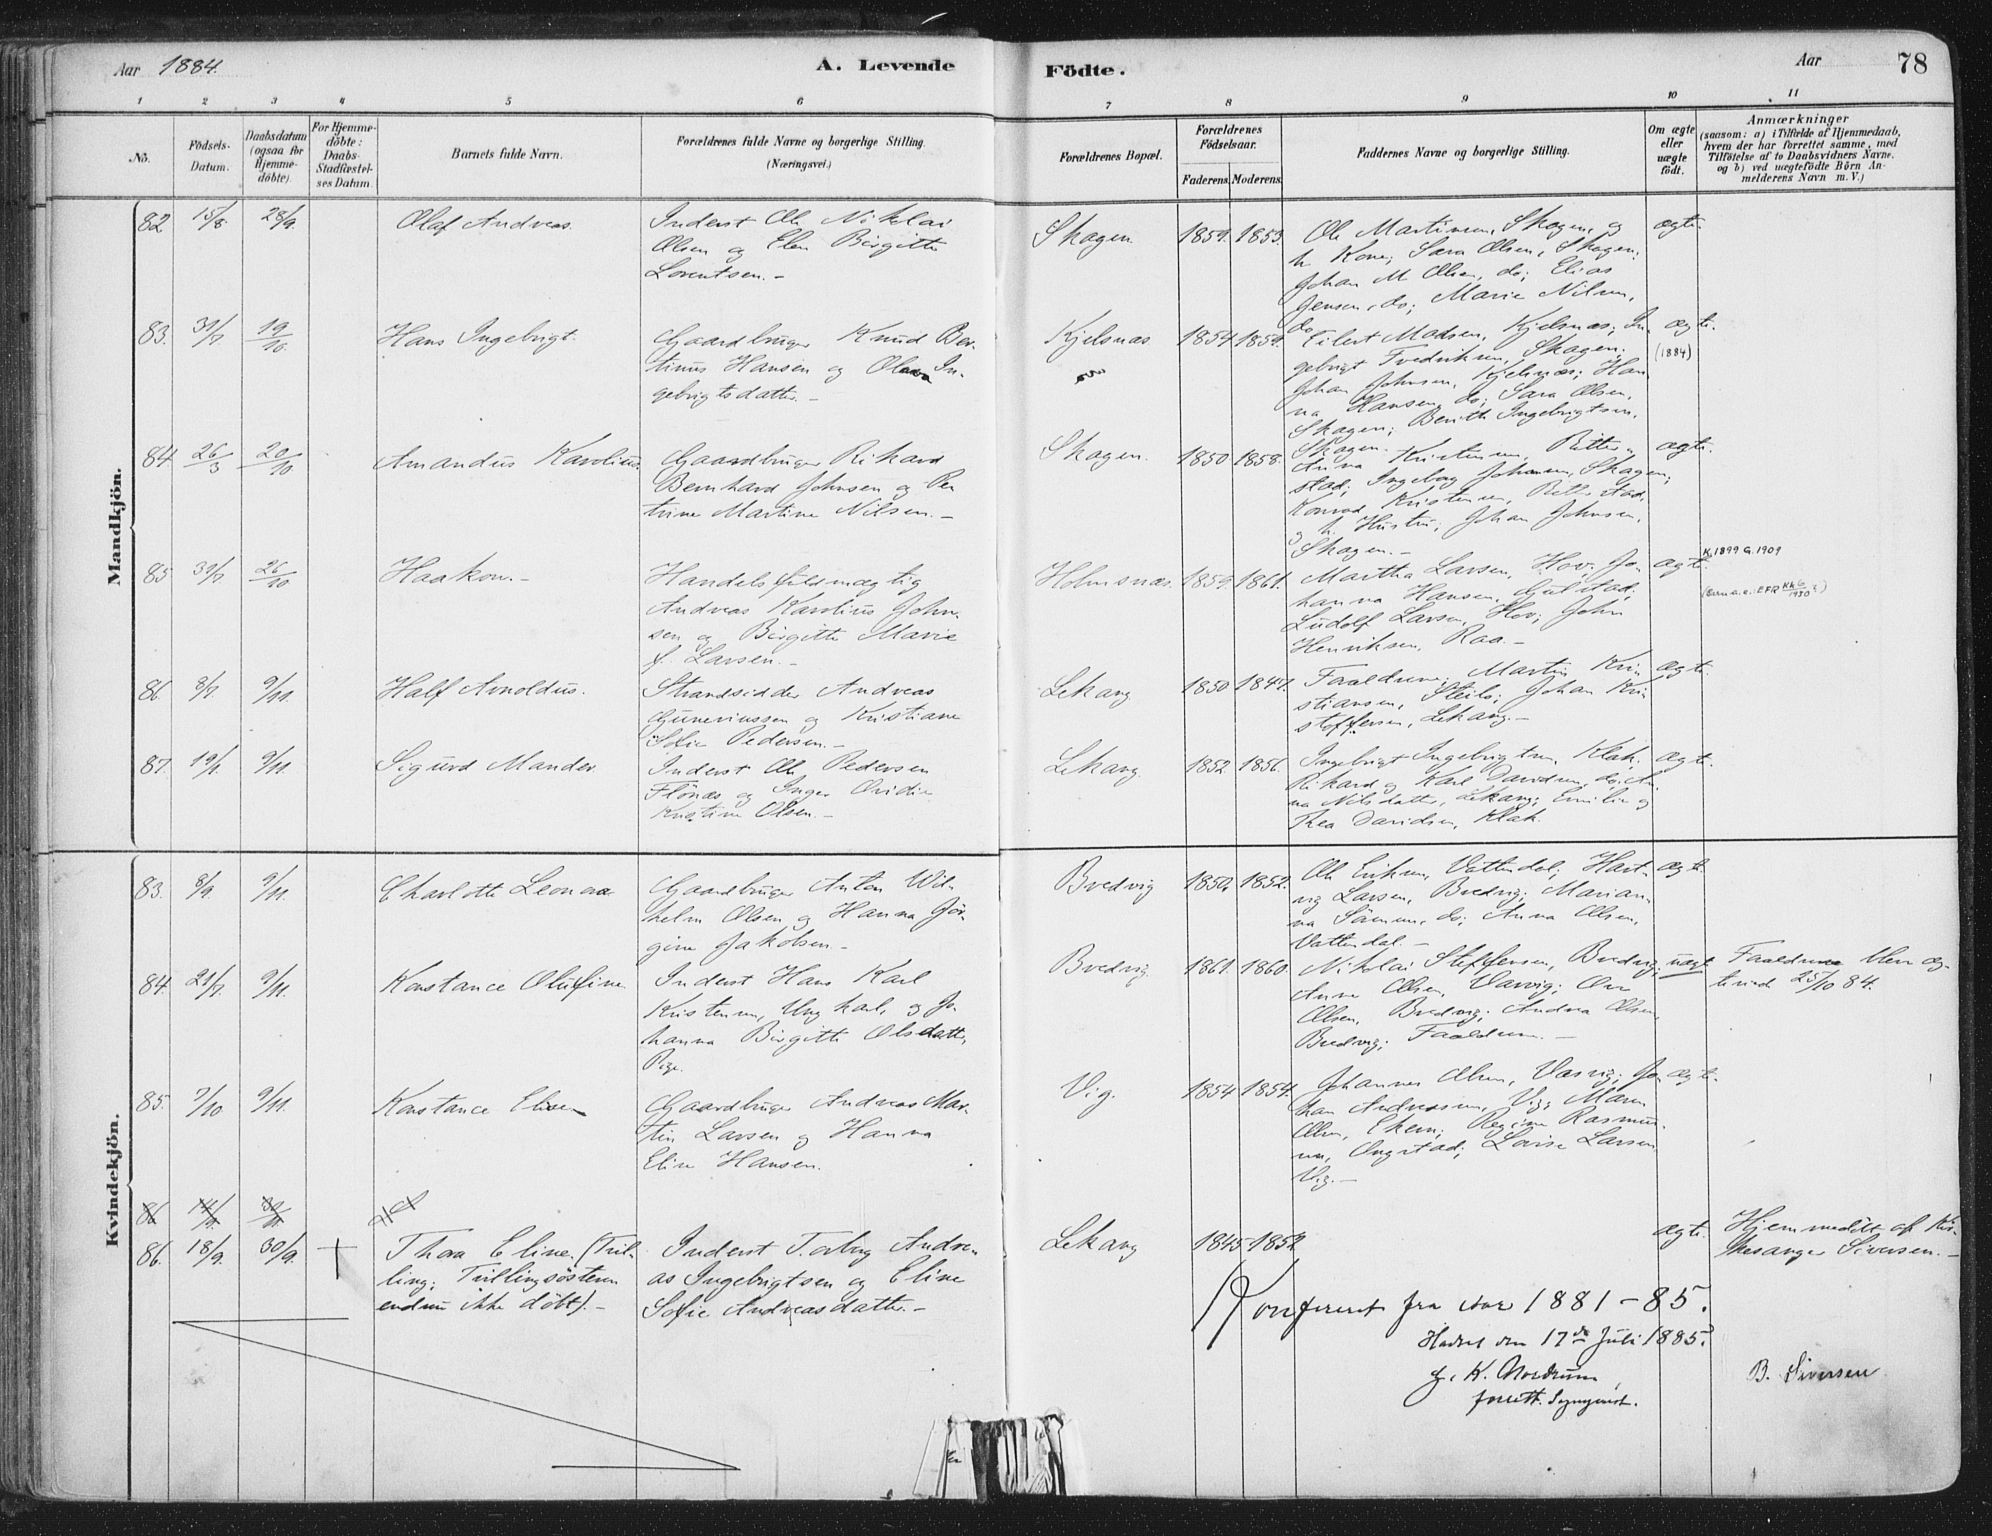 Aar 1884. A. Levende Födte. Aar 78
1 2 3 4 5 6 7 8 9 10 11
No.
Födsels-Datum.
Daabsdatum (ogsaa for Hjemme-döbte).
For Hjemme-döbte: Daabs-Stadfæstel-ses Datum.
Barnets fulde Navn.
Forældrenes fulde Navne og borgerlige Stilling. (Næringsvei.)
Forældrenes Bopæl.
Forældrenes Födselsaar.
Faderens. Moderens.
Faddernes Navne og borgerlige Stilling.
Om ægte eller uægte födt.
Anmærkninger
(saasom: a) i Tilfælde af Hjemmedaab,
hvem der har forrettet samme, med
Tilföielse af to Daabsvidners Navne,
og b) ved uægtefödte Börn An-
melderens Navn m. V.)
Mandkjön.
82 15/8 28/9. Olaf Andreas. Inderst Ole Nikolai
Olsen og Elen Birgitte
Lorentsen.-
Skagen 1859. 1853.
Ole Martinsen, Skagen, og
h. Kone; Sara Olsen, Skagen;
Johan M Olsen, do; Elias
Jensen, do; Marie Nilsen,
do
ægte.
83. 31/7 19/10. Hans Ingebrigt. Gaardbruger Knud Ber-
tinus Hansen og Olava In-
gebrigtsdatter.-
Kjelsnæs 1854 1859.
Eilert Madsen, Kjelsnæs; In-
gebrigt Fredriksen, Skagen.
Johan Johnsen, Kjelsnæs; Han-
na Hansen, do; Sara Olsen,
Skagen; Berith Ingebrigtsen,
Skagen.
ægte.
(1884)
84 26/3 20/10 Amandus Karolius. Gaardbruger Rikard
Bernhard Johnsen og Pe-
trine Martine Nilsen.-
Skagen. 1850 1858.
Anna Kristensen, Ritter-
stad; Ingeborg Johansen, Skagen;
Konrad Kristensen, Ritterstad,
og h. Hustru; Johan Johnsen,
Skagen.-
ægte.
85 30/7 26/10 Haakon.- Handelsfuldmægtig
Andreas Karolius John-
sen og Birgitte Marie
f. Larsen.-
Holmsnæs. 1859. 1861.
Martha Larsen, Hov. Jo-
hanna Hansen, Gulstad;
Ludolf Larsen, Hov; John
Henriksen, Raa.-
ægte.
K. 1899 G. 1909
86. 8/7. 9/11. Half Arnoldus. Strandsidder Andreas
Guneriussen og Kristiane
Sofie Pedersen.-
Lekang 1850 1847.
Forældrene, Martin Kri-
stiansen, Steilo; Johan Kri-
stoffersen, Lekang.-
ægte.
87. 19/1. 9/11. Sigurd Mander Inderst Ole Pedersen
Flönæs og Inger Ovidie
Kristine Olsen.-
Lekang 1852 1856.
Ingebrigt Ingebrigtsen, Klak;
Rikard og Karl Davidsen, do; An-
na Nilsdatter, Lekang; Emilie og
Thea Davidsen, Klak.
ægte.
Kvindekjön.
83. 8/9. 9/11. Charlotte Leonora Gaardbruger Anton Wil-
helm Olsen og Hanna Jör-
gine Jakobsen-
Bredvig 1850. 1852.
Ole Eriksen, Vattendal; Hart-
vig Larsen, Bredvig; Marian-
na Simonsen, do; Anna Olsen,
Vattendal.-
ægte
84. 21/7. 9/11. Konstance Olufine Inderst Hans Karl
Kristensen, Ungkarl, og Jo-
hanna Birgitte Olsdatter,
Pige.
Bredvig. 1861. 1860.
Nikolai Steffensen, Bredvig;
Anne Olsen, Vasvig; Ove
Olsen, Bredvig; Andrea Olsen,
Bredvig; Forældrene.-
uægt.
Forældrene blev æg-
teviet 25/10 84.
85. 7/10 9/11. Konstance Elisen Gaardbruger Andreas Mar-
tin Larsen og Hanna
Eline Hansen.
Vig. 1854 1854.
Johannes Olsen, Vasvig; Jo-
han Andreassen, Vig; Maren
Olsen, Ekern; Regine Rasmus-
sen, Ongstad; Lovise Larsen
Vig.-
ægte.
86
86. 18/9. 30/9. † Thora Eline (Tvil-
ling; Tvillingsösteren
endnu ikke döbt).-
Inderst Torberg Andre-
as Ingebrigtsen og Eline
Sofie Andreasdatter.-
Lekang 1845 1852
ægte.
Hjemmedöbt af Kir-
kesanger Sivertsen.-
Konfereret fra Aar 1881-85.
Hadsel den 17de Juli 1885.
J. K. Nordrum
B. Sivertsen